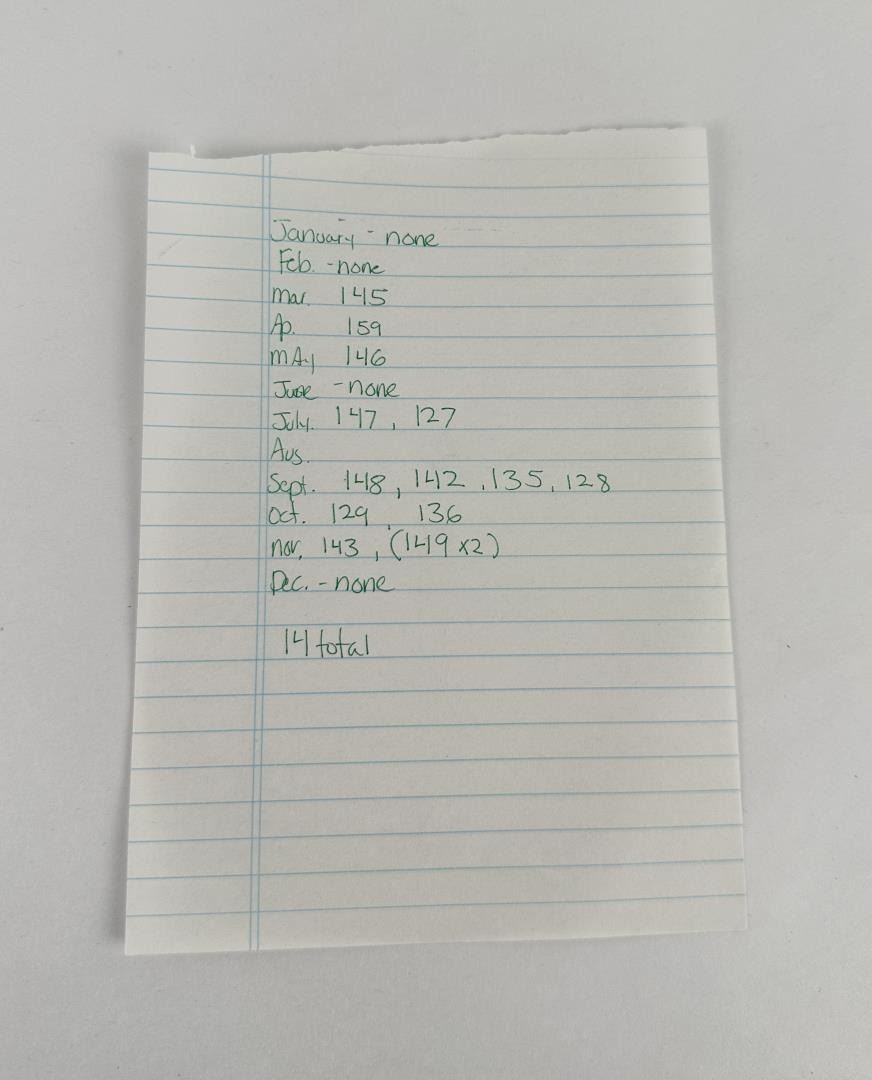 January - none
Feb. - none
Mar. 145
Ap. 159
MAy 146
June - none
July. 147, 127
Aug.
Sept. 148, 142, 135, 128
Oct. 129, 136
Nov. 143, (149 x2)
Dec. - none
14 total